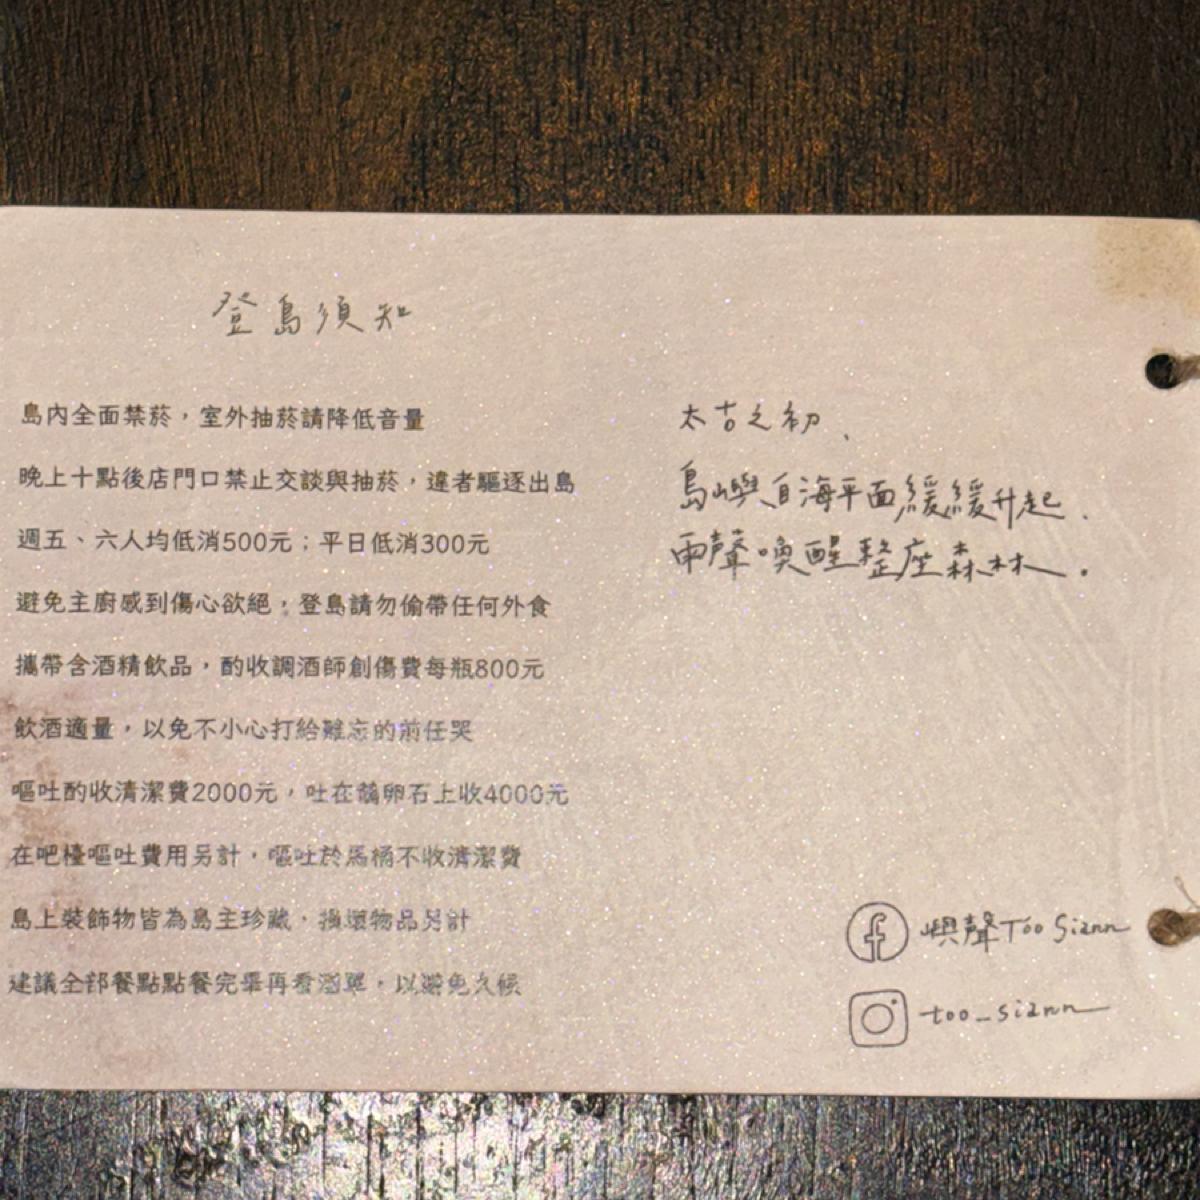 登島須知
島內全面禁菸，室外抽菸請降低音量
晚上十點後店門口禁止交談與抽菸，違者驅逐出島
週五、六人均低消500元；平日低消300元
避免主廚感到傷心欲絕，登島請勿偷帶任何外食
攜帶含酒精飲品，酌收調酒師創傷費每瓶800元
飲酒適量，以免不小心打給難忘的前任哭
嘔吐酌收清潔費2000元，吐在鵝卵石上收4000元
在吧檯嘔吐費用另計，嘔吐於馬桶不收清潔費
島上裝飾物皆為島主珍藏，損壞物品另計
建議全部餐點點餐完畢再看酒單，以避免久候
太古之初、
島嶼自海平面緩緩升起、
雨聲喚醒整座森林。
嶼聲Too Siann
too_siann